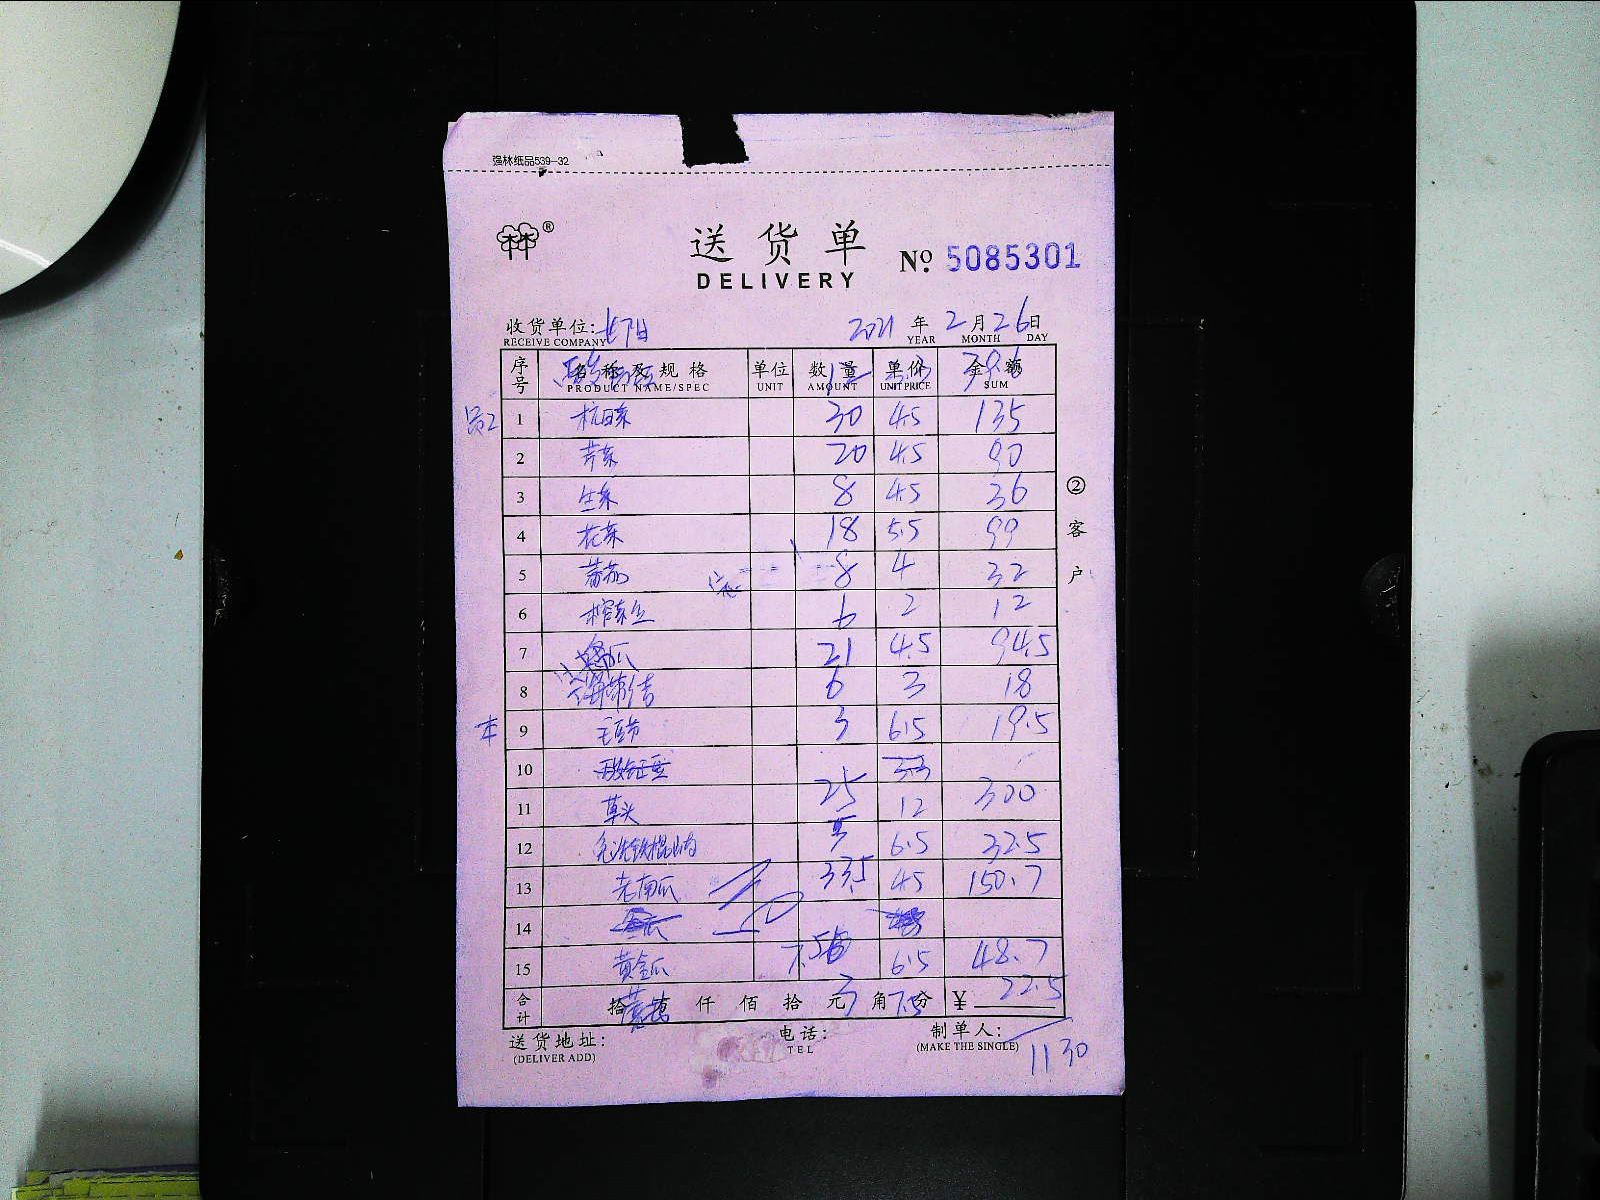 强林纸品539-32
林林®
送货单
DELIVERY
No. 5085301
收货单位:
RECEIVE COMPANY
2021年2月26日
YEAR MONTH DAY
序号 名称及规格 单位 数量 单价 金额
PRODUCT NAME/SPEC UNIT AMOUNT UNIT PRICE SUM
12 3.3 39.6
员工 1 杭白菜 30 4.5 135
2 芹菜 20 4.5 90
3 生菜 8 4.5 36
4 花菜 18 5.5 99
5 蕃茄 8 4 32
6 榨菜丝 6 2 12
7 21 4.5 94.5
8 海带结 6 3 18
本 9 毛豆节 3 6.5 19.5
10 3.3
11 草头 25 12 300
12 免洗铁棍山药 5 6.5 32.5
13 老南瓜 33.5 4.5 150.7
14
15 黄金瓜 7.5 6.5 48.7
合计 拾 仟 佰 拾 元 角 分 ¥
3 7.5 22.5
② 客户
送货地址:
(DELIVER ADD)
电话:
TEL
制单人:
(MAKE THE SINGLE)
1130